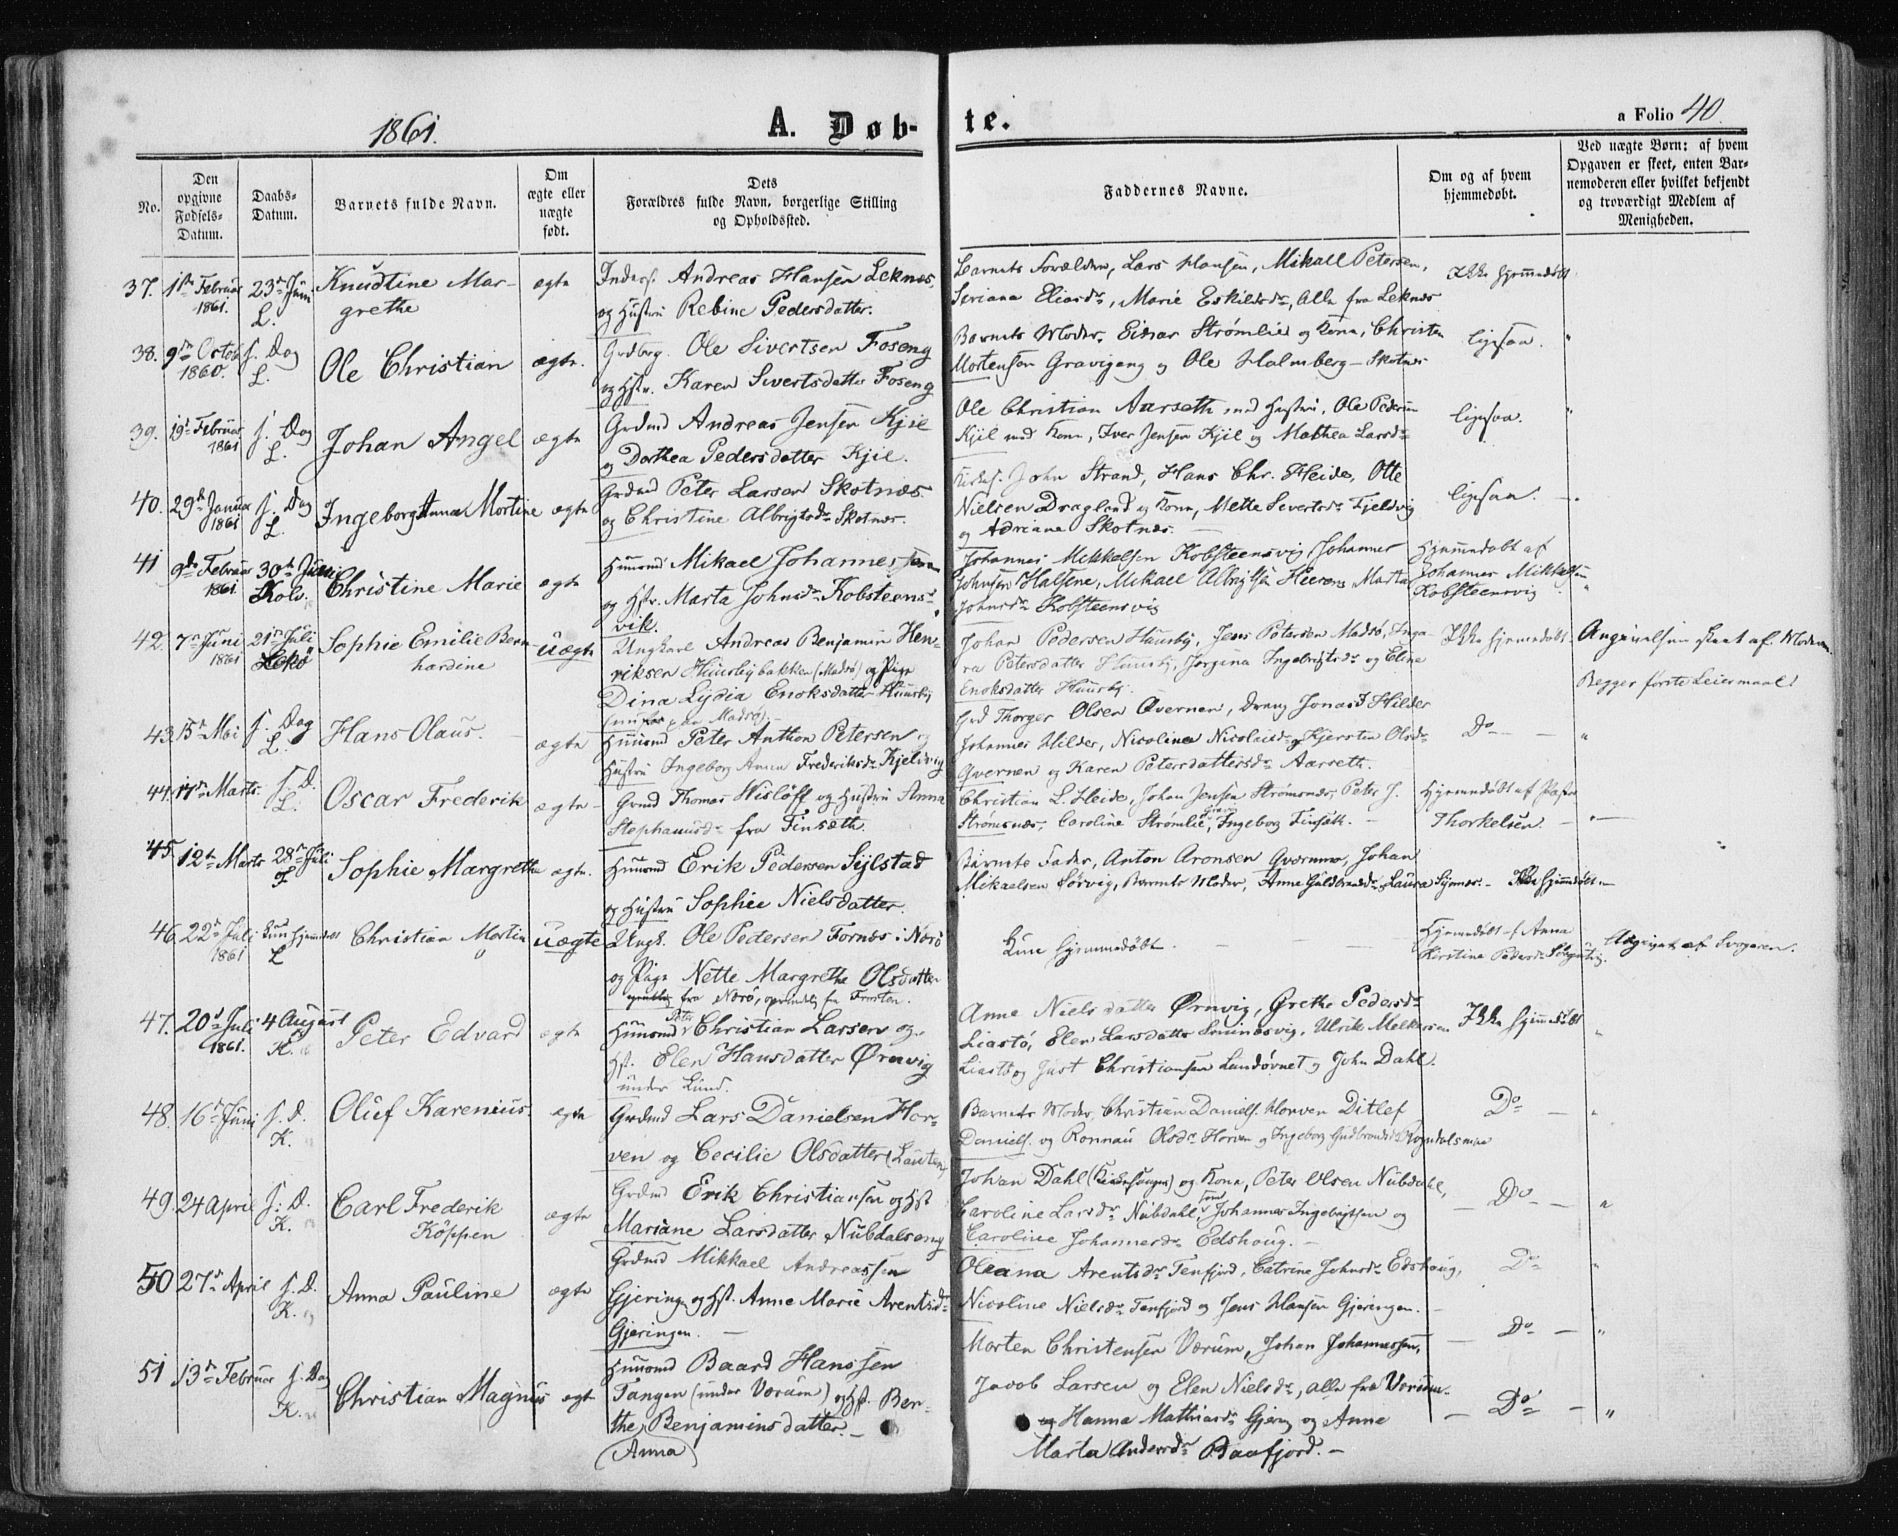 1861.
A. Døb-
te.
a Folio 40.
No.
Den
opgivne
Fødsels-
Datum.
Daabs-
Datum.
Barnets fulde Navn.
Om
ægte eller
uægte
født.
Dets
Forældres fulde Navn, borgerlige Stilling
og Opholdssted.
Faddernes Navne.
Om og af hvem
hjemmedøbt.
Ved uægte Børn: af hvem
Opgaven er skeet, enten Bar-
nemoderen eller hvilket bekjendt
og troværdigt Medlem af
Menigheden.
37. Februar 1861. 23de Juni L.
Knudtine Mar-
grethe
ægte
Andreas Hansen Leknes,
og Hustru Rebine Pedersdatter.
Barnets Forældre, Lars Hansen, Mikall Petersen,
Seriana Eliasdr, Marie Eskildsdr, Alle fra Leknes
Ikke hjemmedøbt
38. 9de Octob 1860. s. Dag L.
Ole Christian
ægte.
Ole Sivertsen Foseng
og Hstr. Karen Sivertsdatter Foseng
Barnets Moder, Einar Strømlie og Kone, Christen
Mortensen Gravigeng og Ole Halmberg - Skotnes
ligesaa.
39. 19de Februar 1861 s. Dag L.
Johan Angel
ægte
Grdmd Andreas Jensen Kjil
og Dorthea Pedersdatter Kjil.
Ole Christian Aarseth med Hustru, Ole Pedersen
Kjil med Kone, Iver Jensen Kjil og Mathea Larsdr
ligesaa.
40. 29de Januar 1861 s. Dag L.
Ingeborg Anna Mortine
ægte
Grdmd Peter Larsen Skotnæs
og Christine Albrigtsdr Skotnæs.
John Strand, Hans Chr. Heide, Otte
Nielsen Dragland og Kone, Mette Sivertsdr Fjeldvig
og Adriane Skotnæs.
ligesaa.
41 9de Februar 1861. 30te Juni Kolv.
Christine Marie
ægte
Huusmd Mikael Johannessen
og Hstr. Marta Johnsdr Kobsteens-
vik.
Johannes Mikkelsen Kobsteensvig, Johannes
Johnsen Halsene, Mikael Albrigtsen Marta
Johnsdr Kobsteensvig
Hjemmedøbt af
Johannes Mikkelsen
Kobsteensvig
42. 7de Juni 1861 21de Juli Lekø
Sophie Emilie Bern-
hardine
Uægte
Ungkarl Andreas Benjamin Hen-
riksen Huusbybakken (Madsø) og Pige
Dina Lydia Enoksdatter Huusby
Johan Pedersen Huusby, Jens Petersen Madsø, Inga-
ra Petersdatter Huusby, Jørgina Ingebrigtsdr og Eline
Enoksdatter Huusby.
Ikke hjemmedøbt
Angivelsen skeet af Moderen.
Begges første Leiermaal!
43. 15de Mai s. Dag L.
Hans Olaus.
ægte
Huusmd Peter Anthon Petersen og
Hustru Ingeborg Anna Frederiksdr Kjeldvig
Thorger Olsen Qvernen, Dreng Jonas Hilder
Johannes Hilder, Nicoline Nicolaisdr og Kjersten Olsdr
Qvernen og Karen Petersdattersdr Aarseth.
Do
44. 17de Marts. s. D. L.
Oscar Frederik
ægte
Grmd Thomas Wisløff og Hustru Anna
Stephanusdr fra Finsæth.
Christian L. Heide, Johan Jensen Strømsnes, Peter J.
Strømsnæs, Caroline Strømlie, Ingeborg Finsæth.
Hjemmedøbt af Pastor
Thorkelsen.
45. 12te Marts 28de Juli F
Sophie Margrethe
ægte.
Huusmd Erik Pedersen Sylstad
og Hustru Sophie Nielsdatter.
Barnets Fader, Anton Aronsen Qværnmo, Johan
Mikaelsen Sørvig, Barnets Moder, Anne Guldbrandsdr, Laura
Ikke hjemmedøbt
46. 22de Juli 1861 Kun hjemmedøbt L
Christian Martin
uægte
Ungk. Ole Pedersen Fornæs i Nærø
og Pige Nette Margrethe Olsdatter
fra Nærø, oprindelig fra Frosten.
Kun hjemmedøbt.
Hjemmedøbt af Anna
Kerstine Pedersdr
Angivet af Svogeren.
47. 20de Juli 1861. 4 August K.
Peter Edvard
ægte
Huusmd Christian Larsen og
Hst. Elen Hansdatter Ørnvig
under Lund.
Anne Nielsdatter Ørnvig, Grethe Pedersdr
Liastø, Elen Larsdatter Ulrik
Liastø og Just Christiansen Lundøvnet og John Dahl.
Ikke hjemmedøbt
48. 16de Juni s. D. K.
Oluf Karenius.
ægte
Grdmd Lars Danielsen Hor-
ven og Cecilie Olsdatter
Barnets Moder, Christian Daniels. Horven Ditlef
Daniels. og Ronnau Olsdr Horven og Ingeborg
Do
49. 24 April s. D. K.
Carl Frederik
Køppen
ægte
Grdmd Erik Christiansen og Hst
Mariane Larsdatter Nubdalseng
Johan Dahl (Kirkesanger) og Kone, Peter Olsen Nubdahl,
Caroline Larsdr Nubdahl, Johannes Ingebrigtsen og
Caroline Johannesdr Edshoug.
Do
50 27de April s. D. K.
Anna Pauline
ægte
Grdmd Mikkael Andreassen
Gjeringen og Hst. Anne Marie Arentsdr
Gjeringen.
Oleana Arentsdr Tenfjord, Catrine Johnsdr Edshoug,
Nicoline Nielsdr Tenfjord og Jens Hansen Gjeringen.
Do
51 13de Februar s. Dag K.
Christian Magnus
ægte
Huusmd Baard Hanssen
Tangen (under Værum) og Hst. Ben-
the Benjaminsdatter.
(Anna)
Morten Christensen Værum, Johan Johannessen,
Jacob Larsen og Elen Nielsdr, alle fra Værum
og Hanna Mathiasdr Gjering og Anne
Marta Andersdr Baafjord.
Do
Do